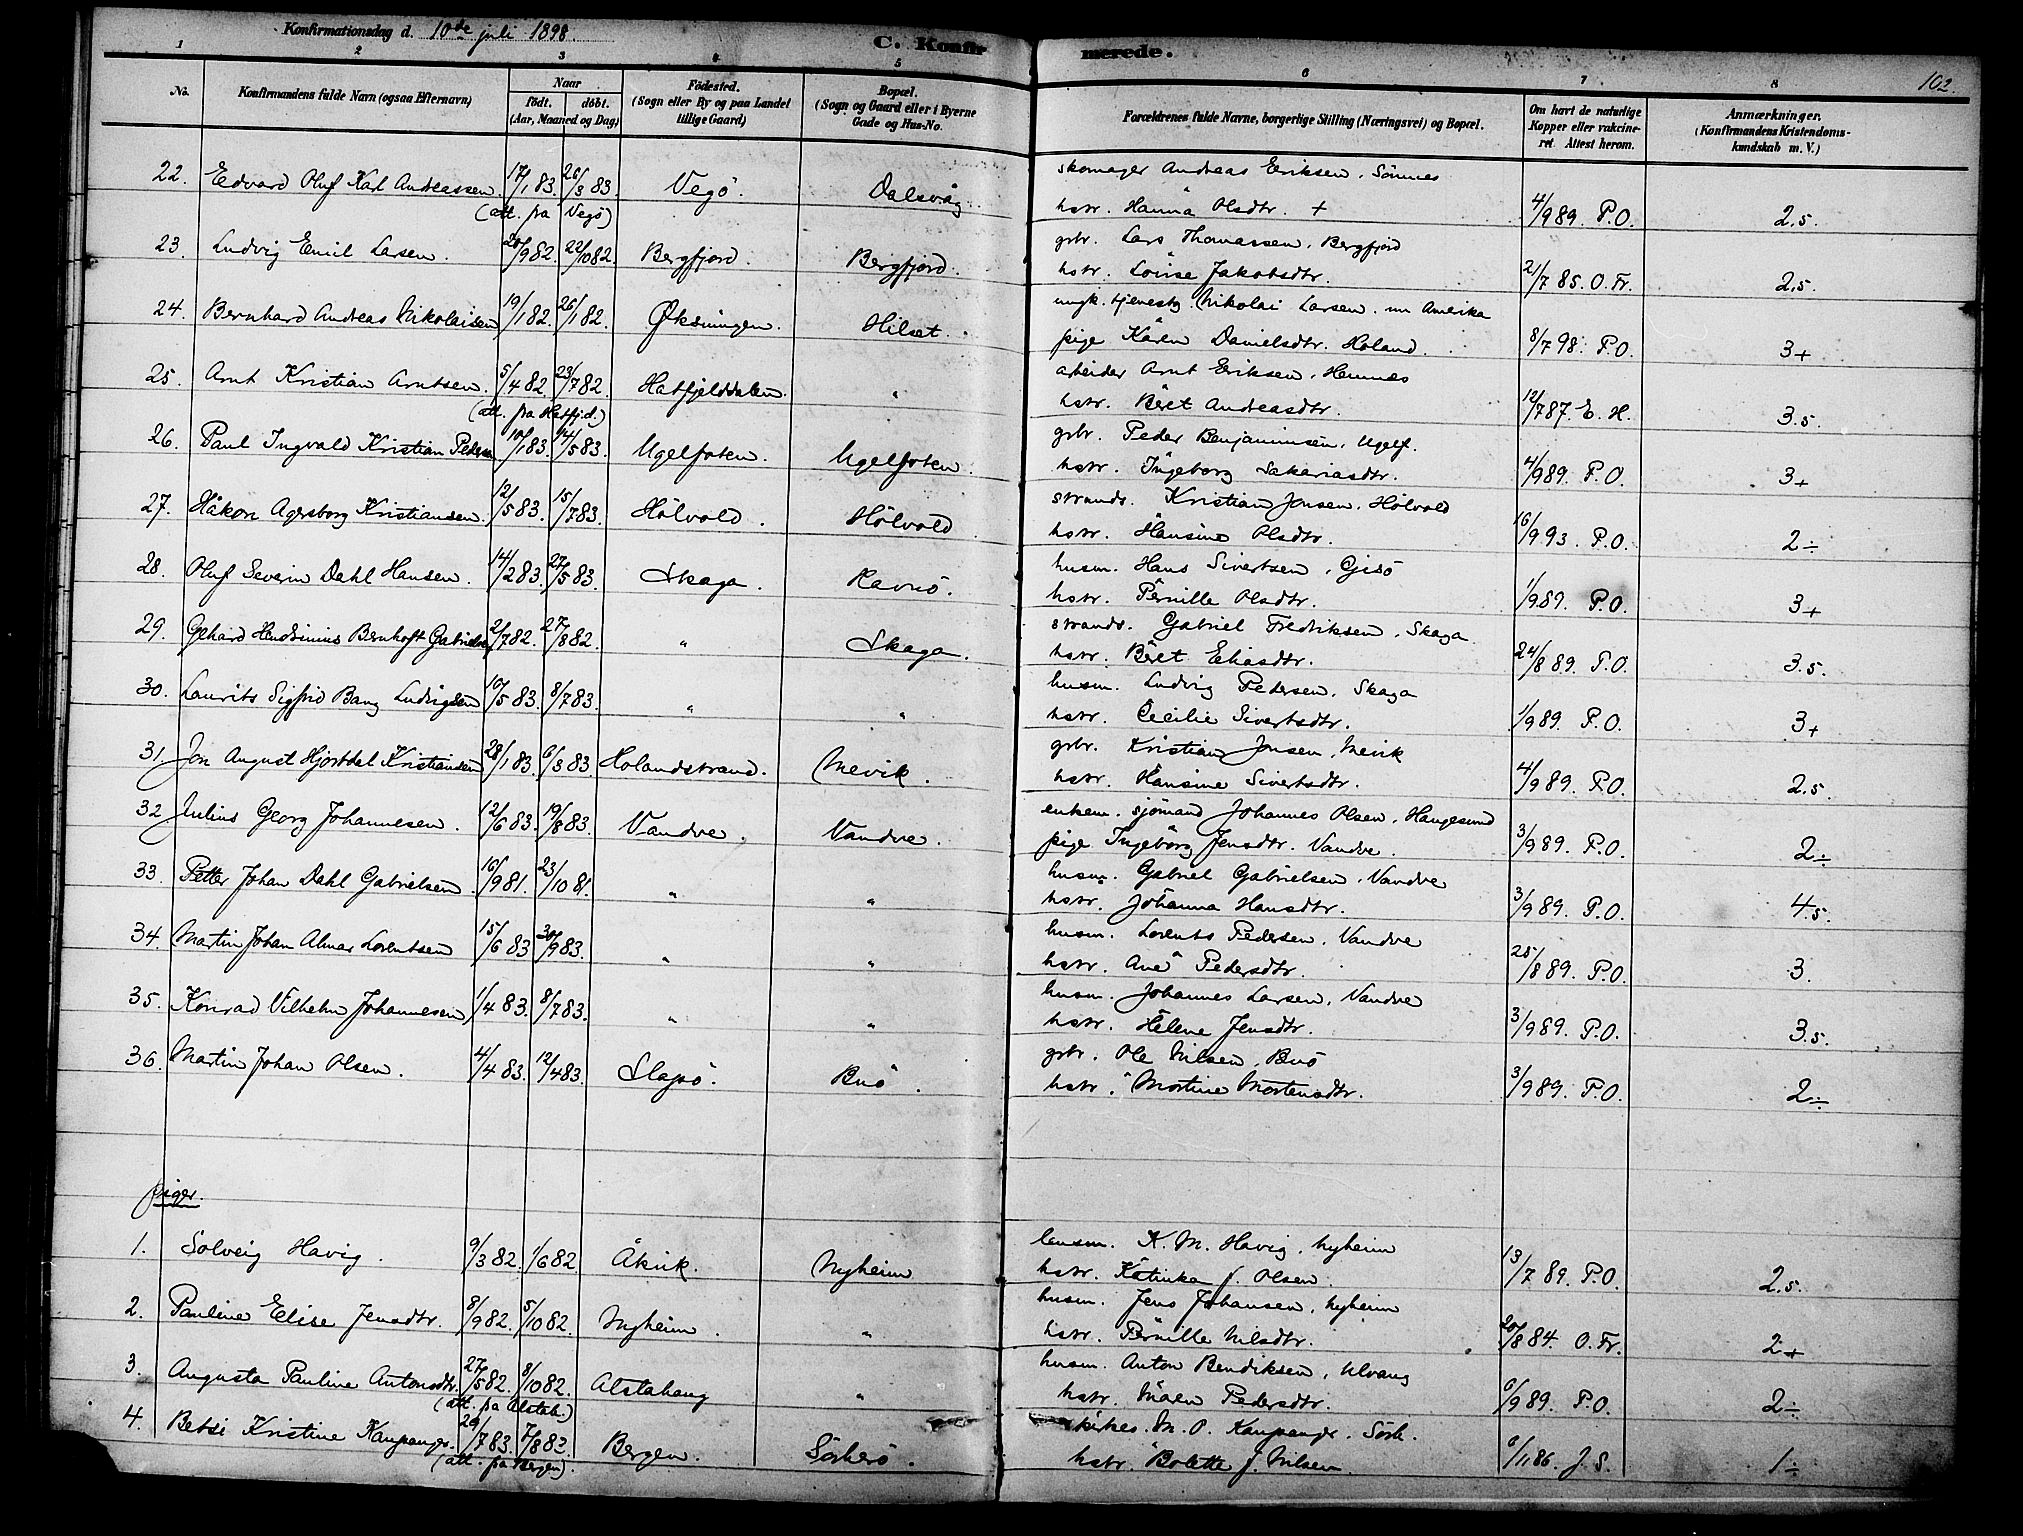 Konfirmationsdag d. 10de juli 1898.
C. Konfirmerede.
102.
1 2 3 4 5 6 7 8
No.
Konfirmandens fulde Navn (ogsaa Efternavn)
Naar
født. døbt.
(Aar, Maaned og Dag)
Fødested.
(Sogn eller By og paa Landet
tillige Gaard)
Bopæl.
(Sogn og Gaard eller i Byerne
Gade og Hus-No.
Forældrenes fulde Navne, borgerlige Stilling (Næringsvei) og Bopæl.
Om havt de naturlige
Kopper eller vakcine-
ret. Attest herom.
Anmærkninger.
(Konfirmandens Kristendoms-
kundskab m. V.)
22. Edvard Oluf Karl Andreassen 17/1 83. 26/3 83. Vegö. Dalsvåg skomager Andreas Eriksen, Sömnes
(att. fra Vegö) hstr. Hanna Olsdtr. + 4/9 89. P.O. 2,5.
23. Ludvig Emil Larsen. 20/9 82. 22/10 82. Bergfjord. Bergfjord. gbr. Lars Thomassen, Bergfjord
hstr. Lovise Jakobsdtr. 21/7 85. O. Fr. 2,5.
24. Bernhard Andreas Nikolaisen 19/1 82. 26/1 82. Öksningen. Hilset. ungk. tjenestg. Nikolai Larsen. nu Amerika
pige Karen Danielsdtr. Höland. 8/7 98. P.O. 3+
25. Arnt Kristian Arntsen. 5/4 82. 23/7 82. Hatfjelddalen. " arbeider Arnt Eriksen, Hemnes
(att. fra Hatfjd.) hstr. Beret Andreasdtr. 12/7 87. E. H. 3.5.
26. Paul Ingvald Kristian Pedersen 10/1 83. 14/5 83. Ugelfoten. Ugelfoten. gbr. Peder Benjaminsen, Ugelf.
hstr. Ingeborg Sakariasdtr. 4/9 89. P.O. 3+
27. Håkon Agersborg Kristiansen. 12/5 83. 15/7 83. Hölvold. Hölvold strands. Kristian Jensen, Hölvold
hstr. Hansine Olsdtr. 16/9 93. P.O. 2÷
28. Oluf Severin Dahl Hansen. 14/2 83. 27/5 83. Skaga. Ravnö. husm. Hans Sivertsen, Gjesö
hstr. Pernille Olsdtr. 1/9 89. P.O. 3+
29. Gehard Bernhoft Gabrielsen 2/7 82. 27/8 82. " Skaga. strands. Gabriel Fredriksen, Skaga
hstr. Beret Eliasdtr. 24/8 89. P.O. 3.5.
30. Laurits Sigfrid Bang Ludvigsen 10/5 83. 8/7 83. " " husm. Ludvig Pedersen, Skaga
hstr. Cecilie Sivertsdtr. 1/9 89. P.O. 3+
31. Jon August Hjortdal Kristiansen 28/1 83. 6/3 83 Hölandstrand. Mevik. gbr. Kristian Jensen, Mevik
hstr. Hansine Sivertsdtr. 4/9 89. P.O. 2.5.
32 Julius Georg Johannesen. 12/6 83. 19/8 83. Vandve. Vandve. enkem. sjömand Johannes Olsen, Haugesund
pige Ingeborg Jensdtr. Vandve. 3/9 89. P.O. 2÷
33. Petter Johan Dahl Gabrielsen. 16/9 81. 23/10 81. " " husm. Gabriel Gabrielsen, Vandve
hstr. Johanna Hansdtr. 3/9 89. P.O. 4.5.
34. Martin Johan Almar Lorentsen 15/6 83 30/9 83. " " husm. Lorents Pedersen, Vandve
hstr. Ane Pedersdtr. 25/8 89. P.O. 3.
35. Konrad Vilhelm Johannesen 1/4 83. 8/7 83. " " husm. Johannes Larsen, Vandve
hstr. Helene Jensdtr. 3/9 89. P.O. 3.5.
36. Martin Johan Olsen. 4/4 83. 12/4 83. Slapö. Buö. gbr. Ole Nilsen, Buö
hstr. Martine Mortensdtr. 3/9 89. P.O. 2÷
piger.
1. Solveig Havig. 9/3 82. 1/6 82. Åkvik. Nyheim lensm. K. M. Havig, nyheim
hstr. Katinka f. Olsen. 13/7 89. P.O. 2.5.
2. Pauline Elise Jensdtr. 8/9 82. 5/10 82. Nyheim. " husm. Jens Johansen, nyheim
hstr. Pernille Nilsdtr. 20/8 84. O. Fr. 2+
3. Augusta Pauline Antonsdtr. 27/5 82. 8/10 82. Alstahaug " husm. Anton Bendiksen, Ulvang
(att. fra Alstah.) hstr. Maren Pedersdtr. 6/9 89. P.O. 2÷
4. Betsi Kristine Kaupanger. 29/7 83. 7/8 83. Bergen. Sörherö. kirkes. M. O. Kaupanger, Sörh.
(att. fra Bergen). hstr. Bolette f. Nilsen. 6/11 86. J. S. 1÷